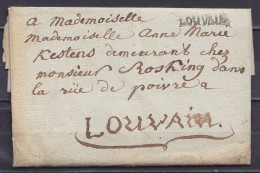 a Mademoiselle
LOUVAIN
Mademoiselle Anne Marie
Kestens demeurant chez
monsieur Rosking dans
la rüe de poivre a
LOUVAIN.